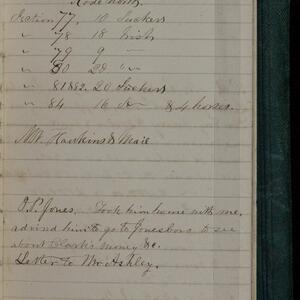 Rode north
Section 77, 10 Suckers
" 78 18 Irish
" 79 9 "
" 80 20 "
" 81&82. 20 Suckers
" 84 16 & 4 horses.
Hawkins & Mail
O.P. Jones, Took him home with me,
advised him to go to Jonesboro to see
about Clark's money &c.
Letter to Mr. Ashley.